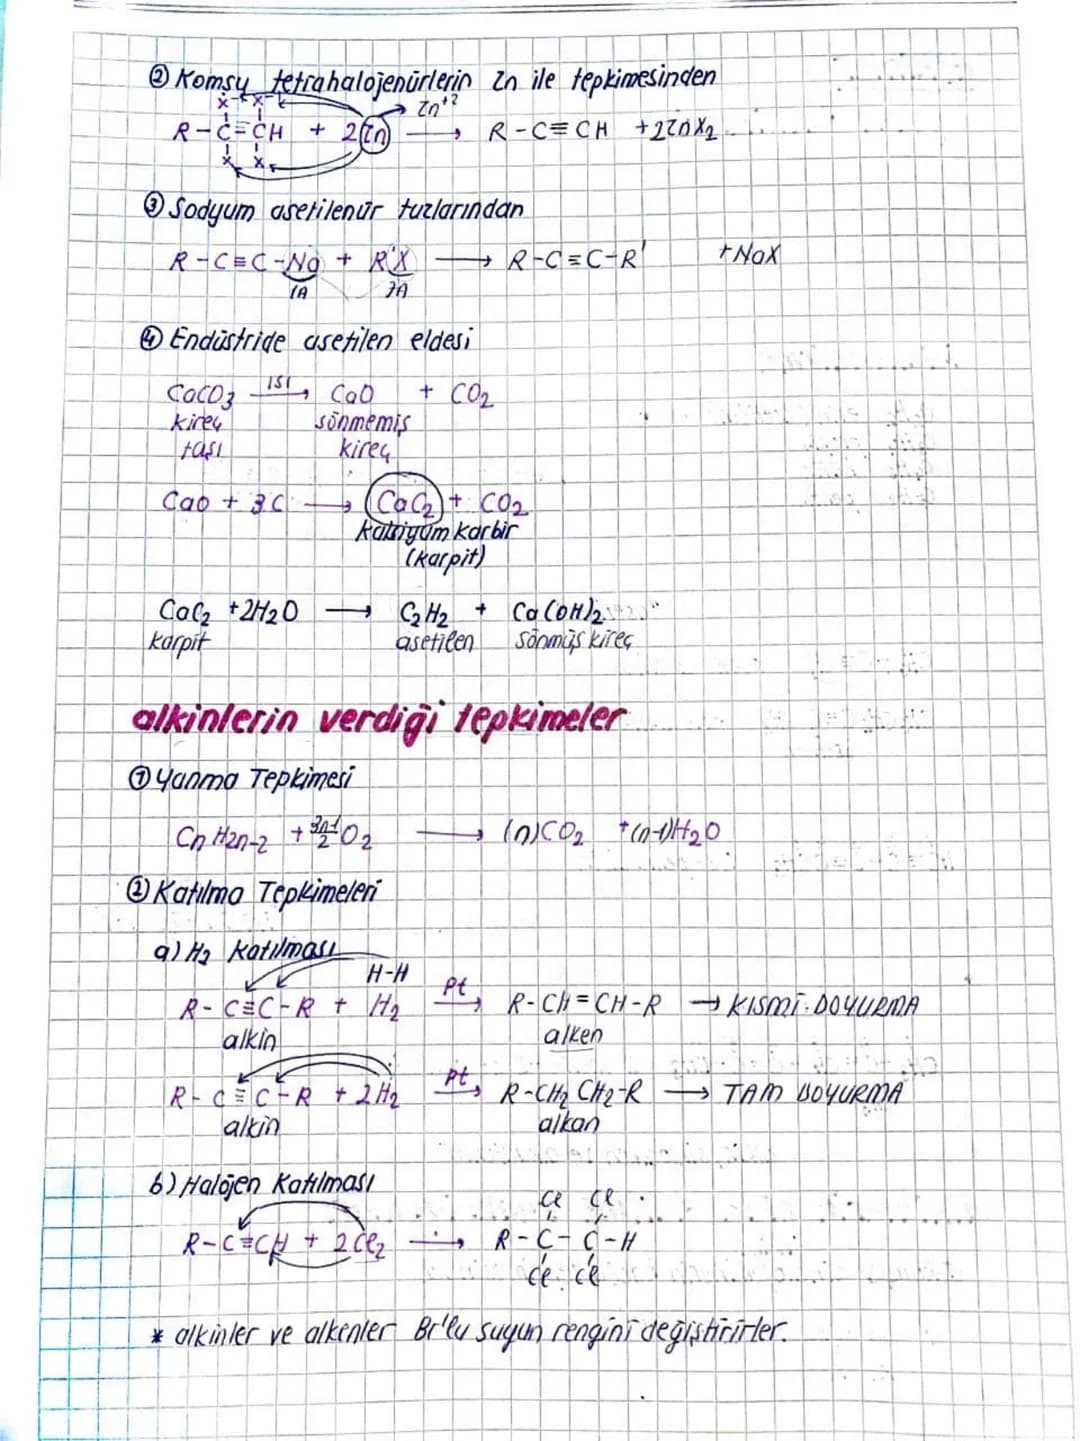 ② Komşu tetrahalojenürlerin Zn ile tepkimesinden
X X Zn+2
R-C-CH + 2Zn → R-C≡CH +2ZnX2
X X
③ Sodyum asetilenür tuzlarından
R-C≡C-Na + R'X → R-C≡C-R' +NaX
1A 7A
④ Endüstride asetilen eldesi
CaCO3 ısı→ CaO + CO2
kireç sönmemiş
taşı kireç
CaO + 3C → CaC2 + CO2
Kalsiyum karbir
(karpit)
CaC2 +2H2O → C2H2 + Ca(OH)2
karpit asetilen sönmüş kireç
alkinlerin verdiği tepkimeler
① Yanma Tepkimesi
CnH2n-2 + 3n-1/2 O2 → (n)CO2 +(n-1)H2O
② Katılma Tepkimeleri
a) H2 Katılması
H-H
R-C≡C-R + H2 Pt→ R-CH=CH-R → KISMİ DOYURMA
alkin alken
R-C≡C-R + 2H2 Pt→ R-CH2 CH2-R → TAM DOYURMA
alkin alkan
b) Halojen Katılması
Cl Cl
R-C≡CH + 2Cl2 → R-C-C-H
Cl Cl
* alkinler ve alkenler Br'lu suyun rengini değiştirirler.